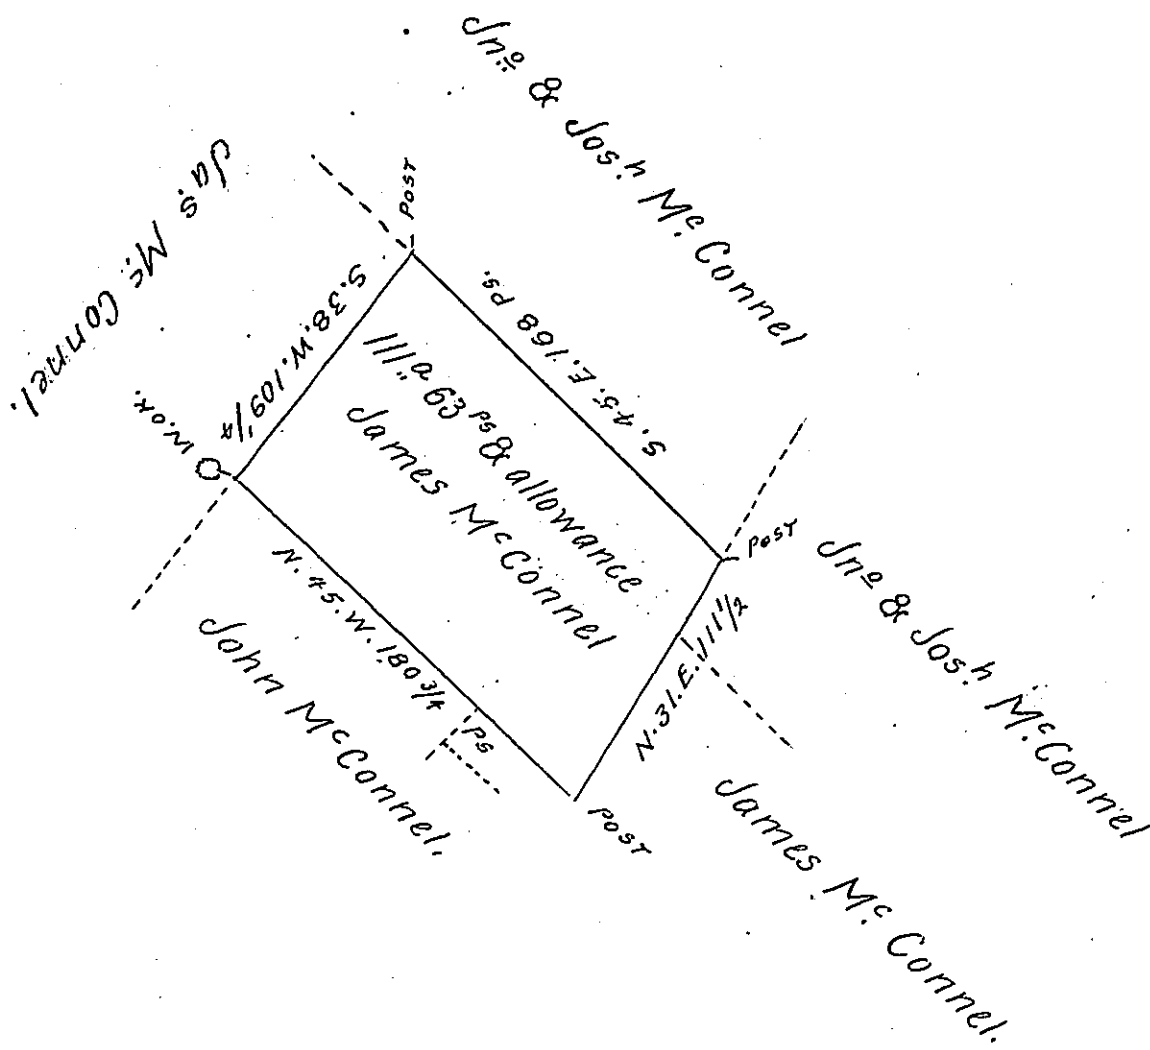 Jnº & Josh Mc. Connel
Jas. Mc. Connel.
POST
S.38.W.109 1/4
S.45.E.168 Ps.
W.OK.
111.a 63 Ps & allowance
James McConnel
POST
Jnº & Josh. Mc. Connel
N.45.W.180 3/4
PS
N.31.E.111 1/2
John McConnel.
POST
James Mc. Connel.